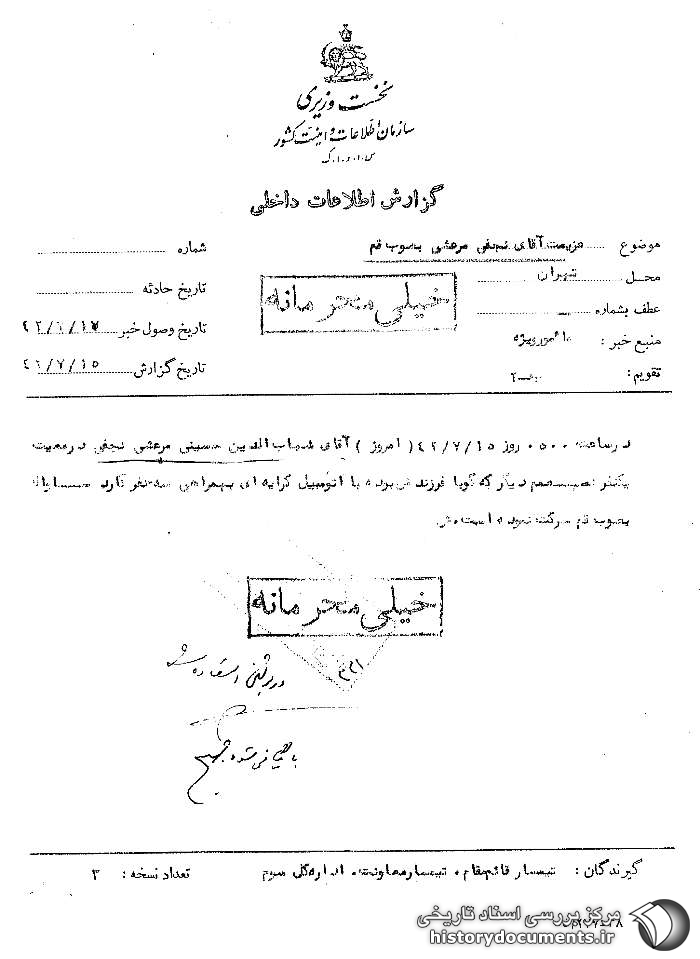 نخست وزیری
سازمان اطلاعات و امنیت کشور
س.ا.و.ا.ک
گزارش اطلاعات داخلی
موضوع عزیمت آقای نجفی مرعشی بصوب قم
شماره
محل تهران
تاریخ حادثه
خیلی محرمانه
عطف بشماره
تاریخ وصول خبر
منبع خبر : مامور ویژه
تاریخ گزارش ۴۲/۷/۱۵
تقویم :
در ساعت ۰۵۰۰ روز ۴۲/۷/۱۵ ( امروز ) آقای شهاب الدین حسینی مرعشی نجفی در معیت
یکنفر معمم دیگر که گویا فرزندش بوده با اتومبیل کرایه ای بهمراهی سه نفر گارد
بصوب قم حرکت نموده است
خیلی محرمانه
۳۳۱
استفاده شد
گیرندگان : تیمسار قائم مقام ، تیمسار معاونت ، اداره کل سوم
تعداد نسخه : ۳
مرکز بررسی اسناد تاریخی
historydocuments.ir